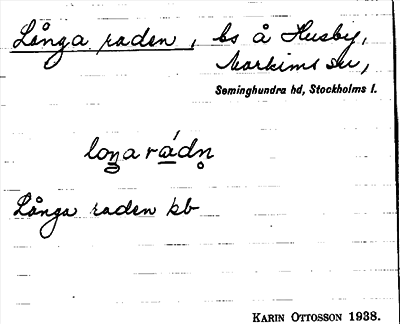 Långa raden, bs å Husby,
Markims sn,
Seminghundra hd, Stockholms l.
loŋa rádn̥
Långa raden kb
KARIN OTTOSSON 1938.